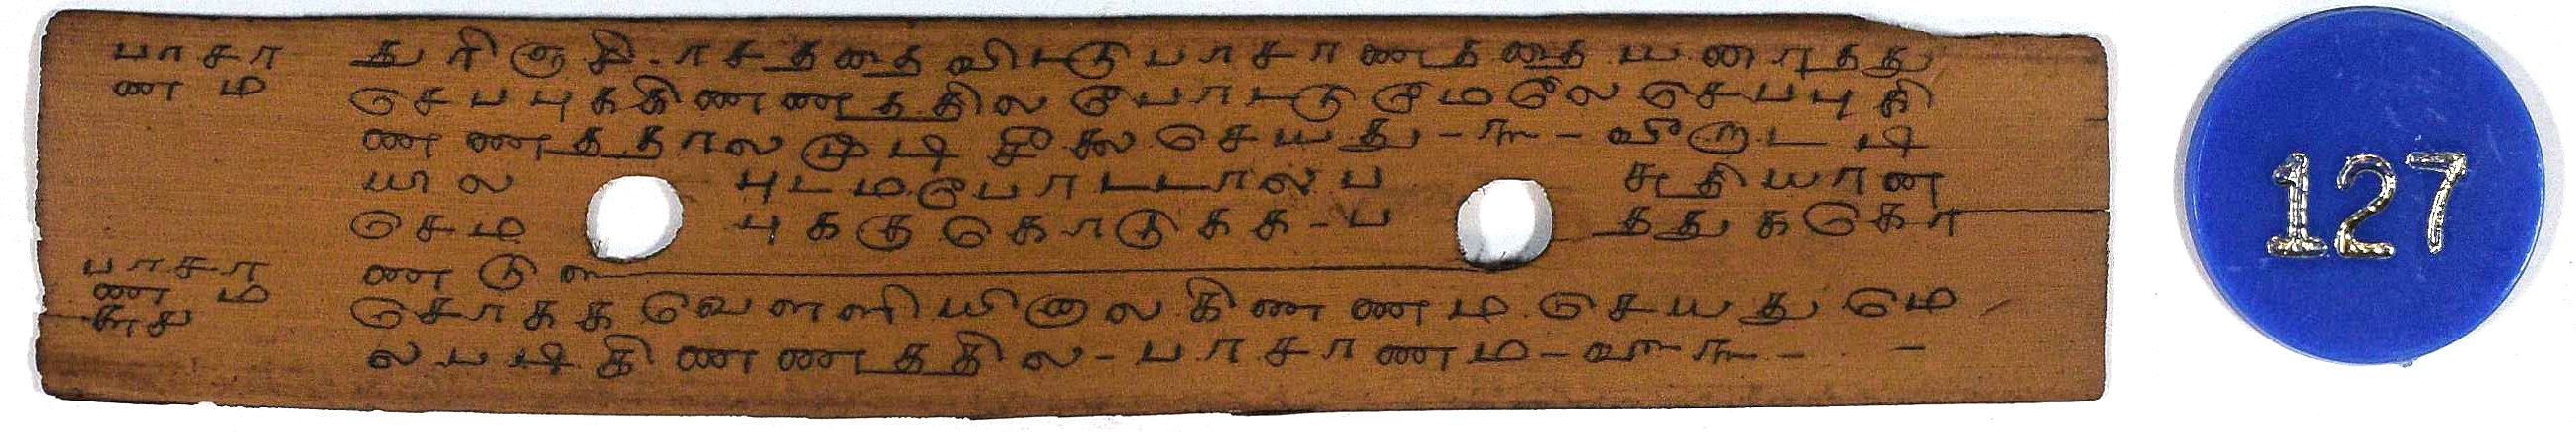 பாசா
ணம
துரிருசி.ரசததைவிடடுபாசாணததை யணாததது
செபபுககிணணததில போடடு மேலே செபபுகி
ணணததால மூடி சீலை செயது - ௩ - விருடடி
யில புடமபோடடால ப சுதியான
செம புககு கொடுகக - ப தது ககொ
ணடு
பாசா
ணம
சொகக வெளளியினால கிணணம செயது மே
லபடி கிணணததில - பாசாணம -
127